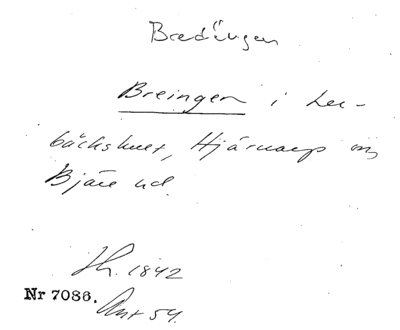 Bredängen
Breingen i Ler-
bäckshult, Hjärnarp sn,
Bjäre hd.
Jh. 1842
Nr 7086. Ant 54.